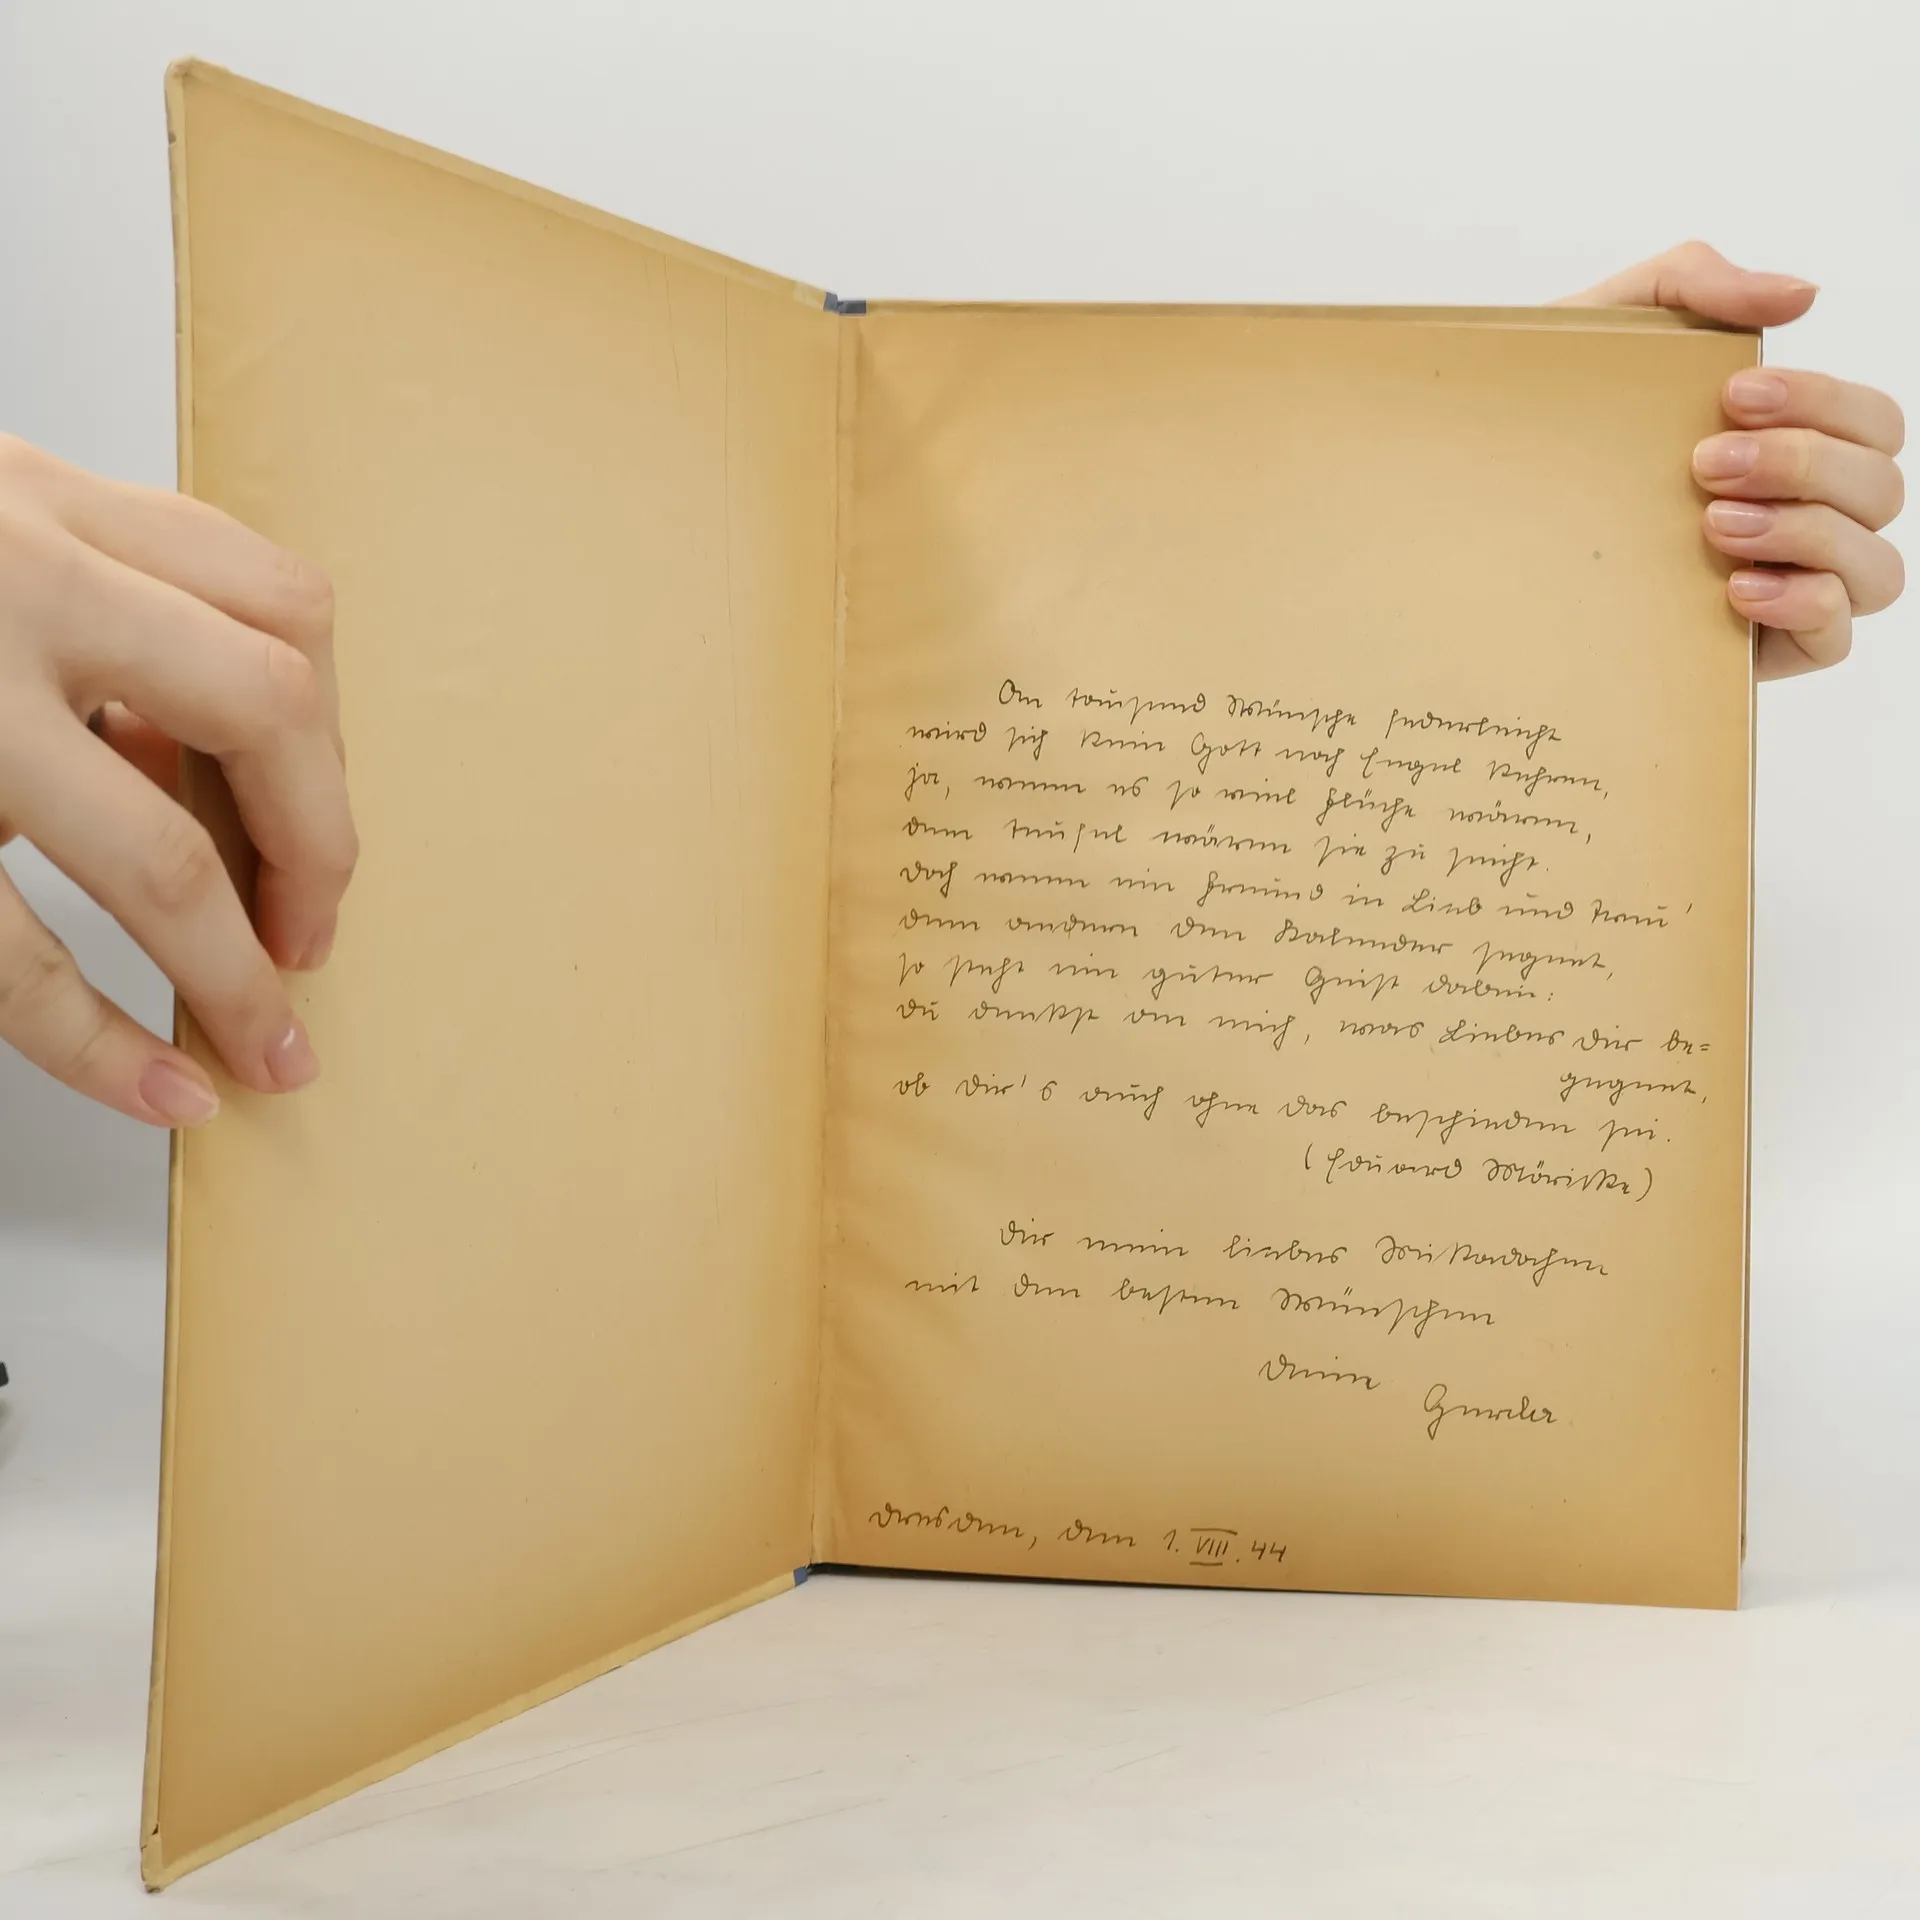 An tausend Wünsche federleicht
wird sich kein Gott noch Engel kehren,
ja, wenn es so viel Flüche wären,
dem Teufel wären sie zu seicht.
Doch wenn ein Freund in Lieb und Treu'
dem andern den Kalender segnet,
so steht ein guter Geist dabei:
Du denkst an mich, was Liebes Dir be=
gegnet,
ob Dir's auch ohne das beschieden sei.
(Eduard Möricke)
Dir mein liebes Mikadochen
mit den besten Wünschen
Deine
Gerda
Dresden, den 1. VIII. 44